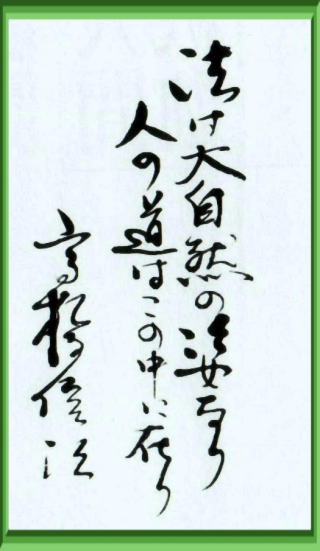 法は大自然の姿なり
人の道はこの中に在り
高橋信次